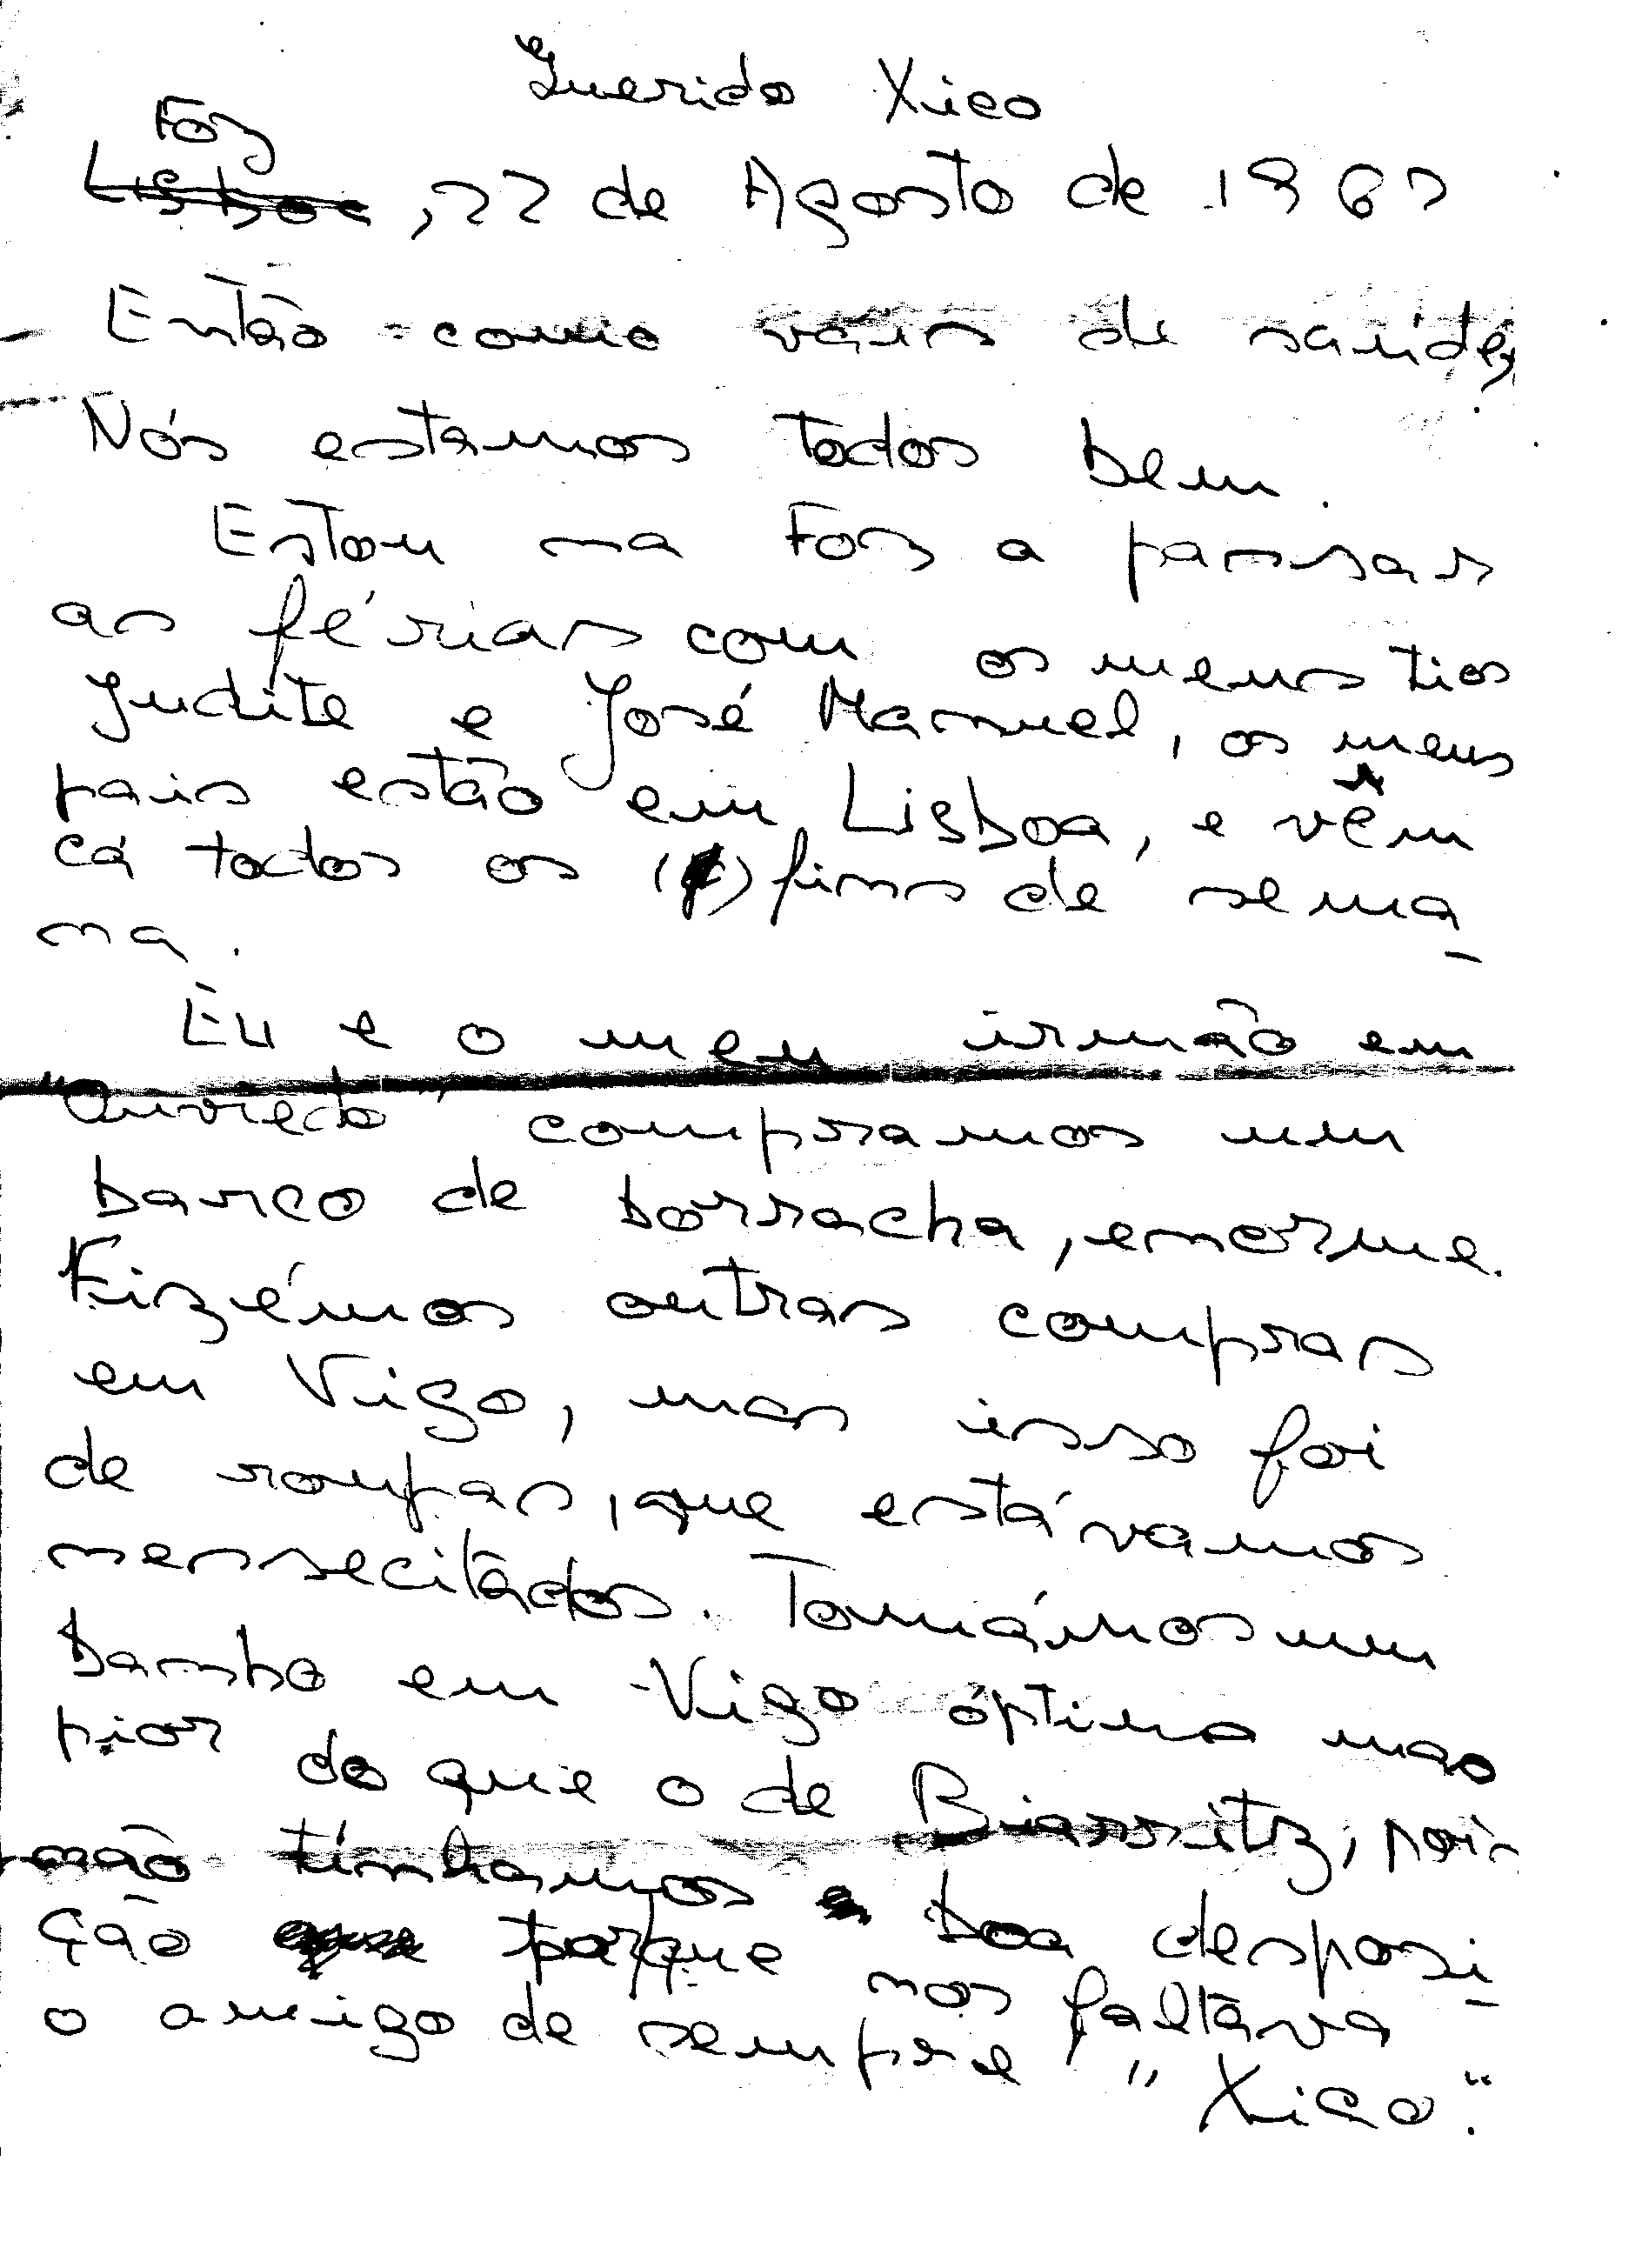 Querido Xico
Foz
Lisboa, 22 de Agosto de 1967
Então como vais de saúde,
Nós estamos todos bem.
Estou na Foz a passar
as férias com os meus tios
Judite e José Manuel, os meus
pais estão em Lisboa, e vêm
cá todos os ( ) fins de sema-
na.
Eu e o meu irmão em
compramos um
barco de borracha, enorme.
Fizémos outras compras
em Vigo, mas isso foi
de roupas, que estávamos
nenssecitados. Tomámos um
banho em Vigo óptimo mas
pior do que o de Biarritz, pois
não tínhamos boa desposi-
ção porque nos faltava
o amigo de sempre "Xico".